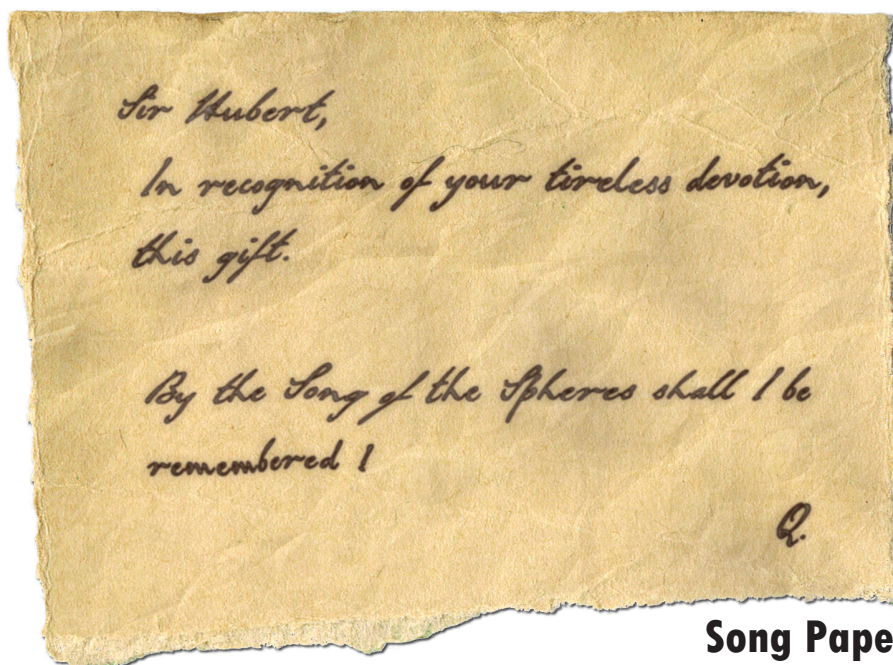 Sir Hubert,
In recognition of your tireless devotion,
this gift.
By the Song of the Spheres shall I be
remembered !
Q.
Song Pape